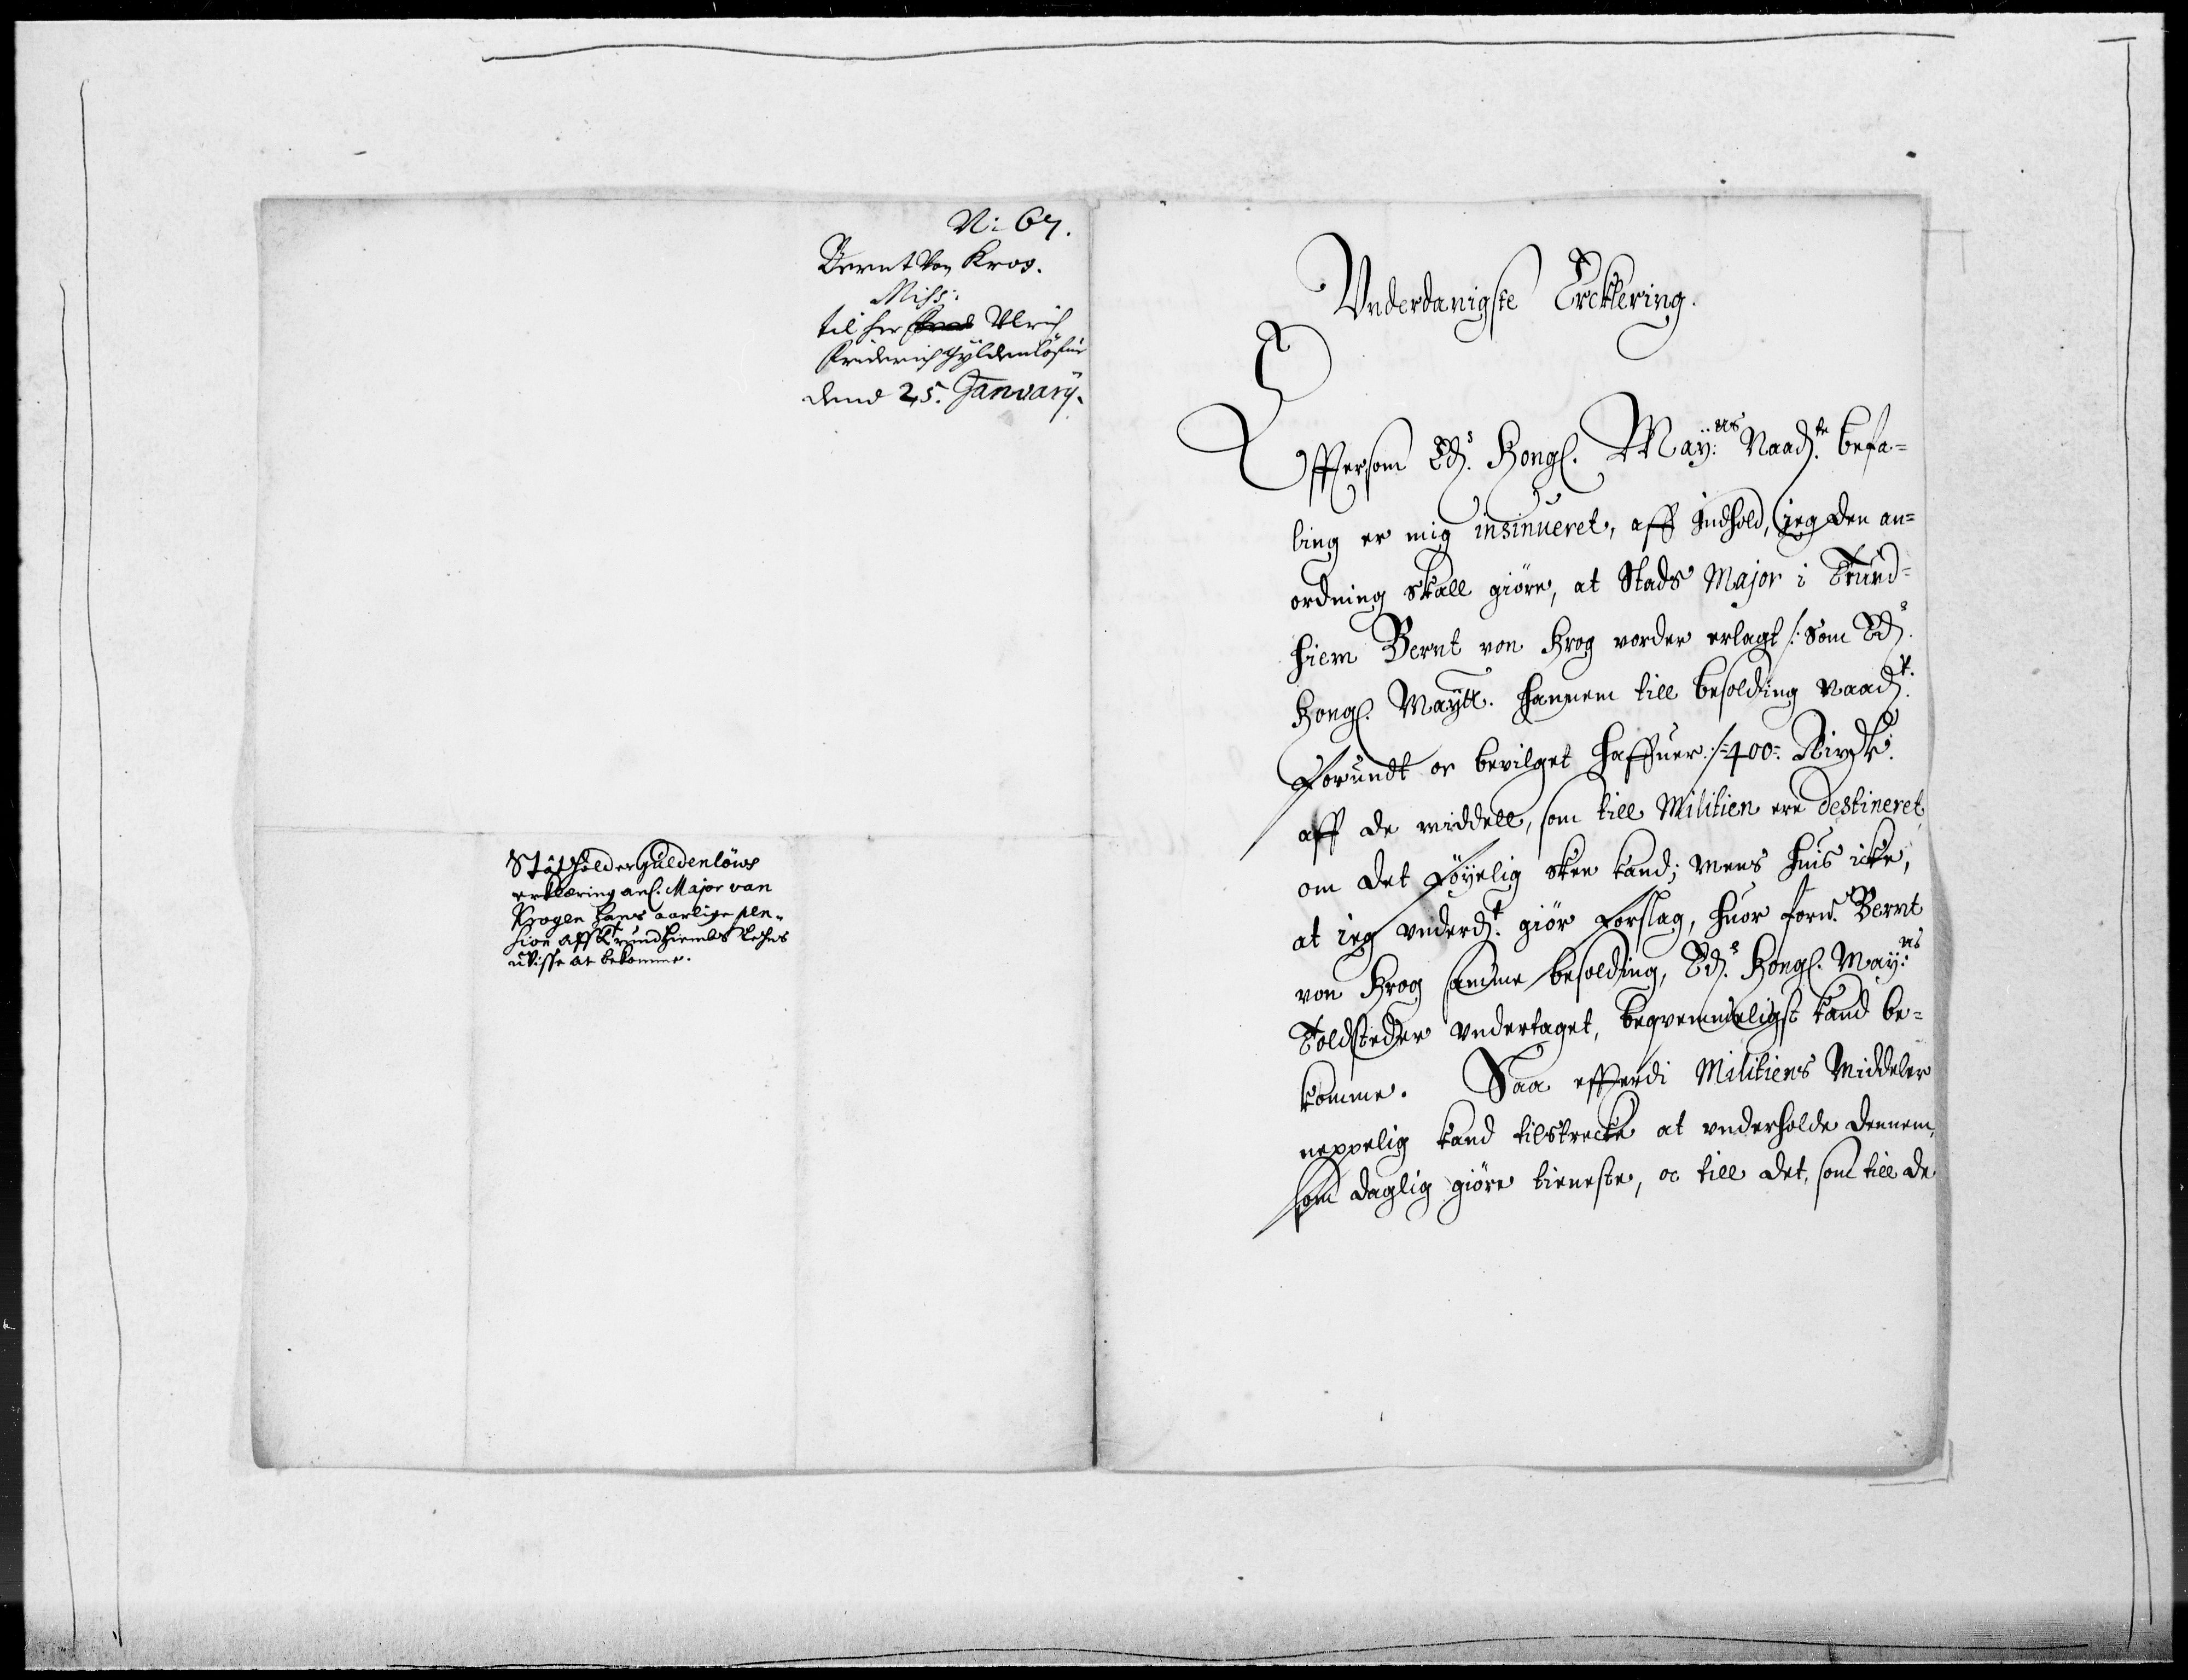 N: 67.
Bernt Von Krog.
Miss:
til her Ulrich
Friderich Gyldenløfue
dend 25. Janvary.
Stathold er Guldenlöws
erklæring anl. Major van
Krogen hans aarlige pen-
sion aff Trundhiembs Lehns
uVisse at bekomme.
Vnderdanigste Ercklering.
Effersom Ed.s Kongl. May:ts Naad.te befa=
ling er mig insinueret, aff Indhold, jeg den an=
ordning skall giøre, at Stads Major i Trund=
hiem Bernt von Krog vorder erlagt /: som Ed.s
Kongl. Maytt. hannem till besolding naad.t
Forundt oc bevilget haffuer :/ 400 Rixdr.
aff de middell, som till Militien ere destineret,
om det føyelig skee kand; mens huis icke,
at jeg vnderd.t giør forslag, huor forn. Bernt
von Krog samme besolding, Ed.s Kongl. May:ts
Toldsteder vndertaget, beqvemmeligst kand be=
komme. Saa efferdi Militiens Middeler
neppelig kand tilstrecke at vnderholde dennem,
som daglig giøre tieneste, oc till det, som till de